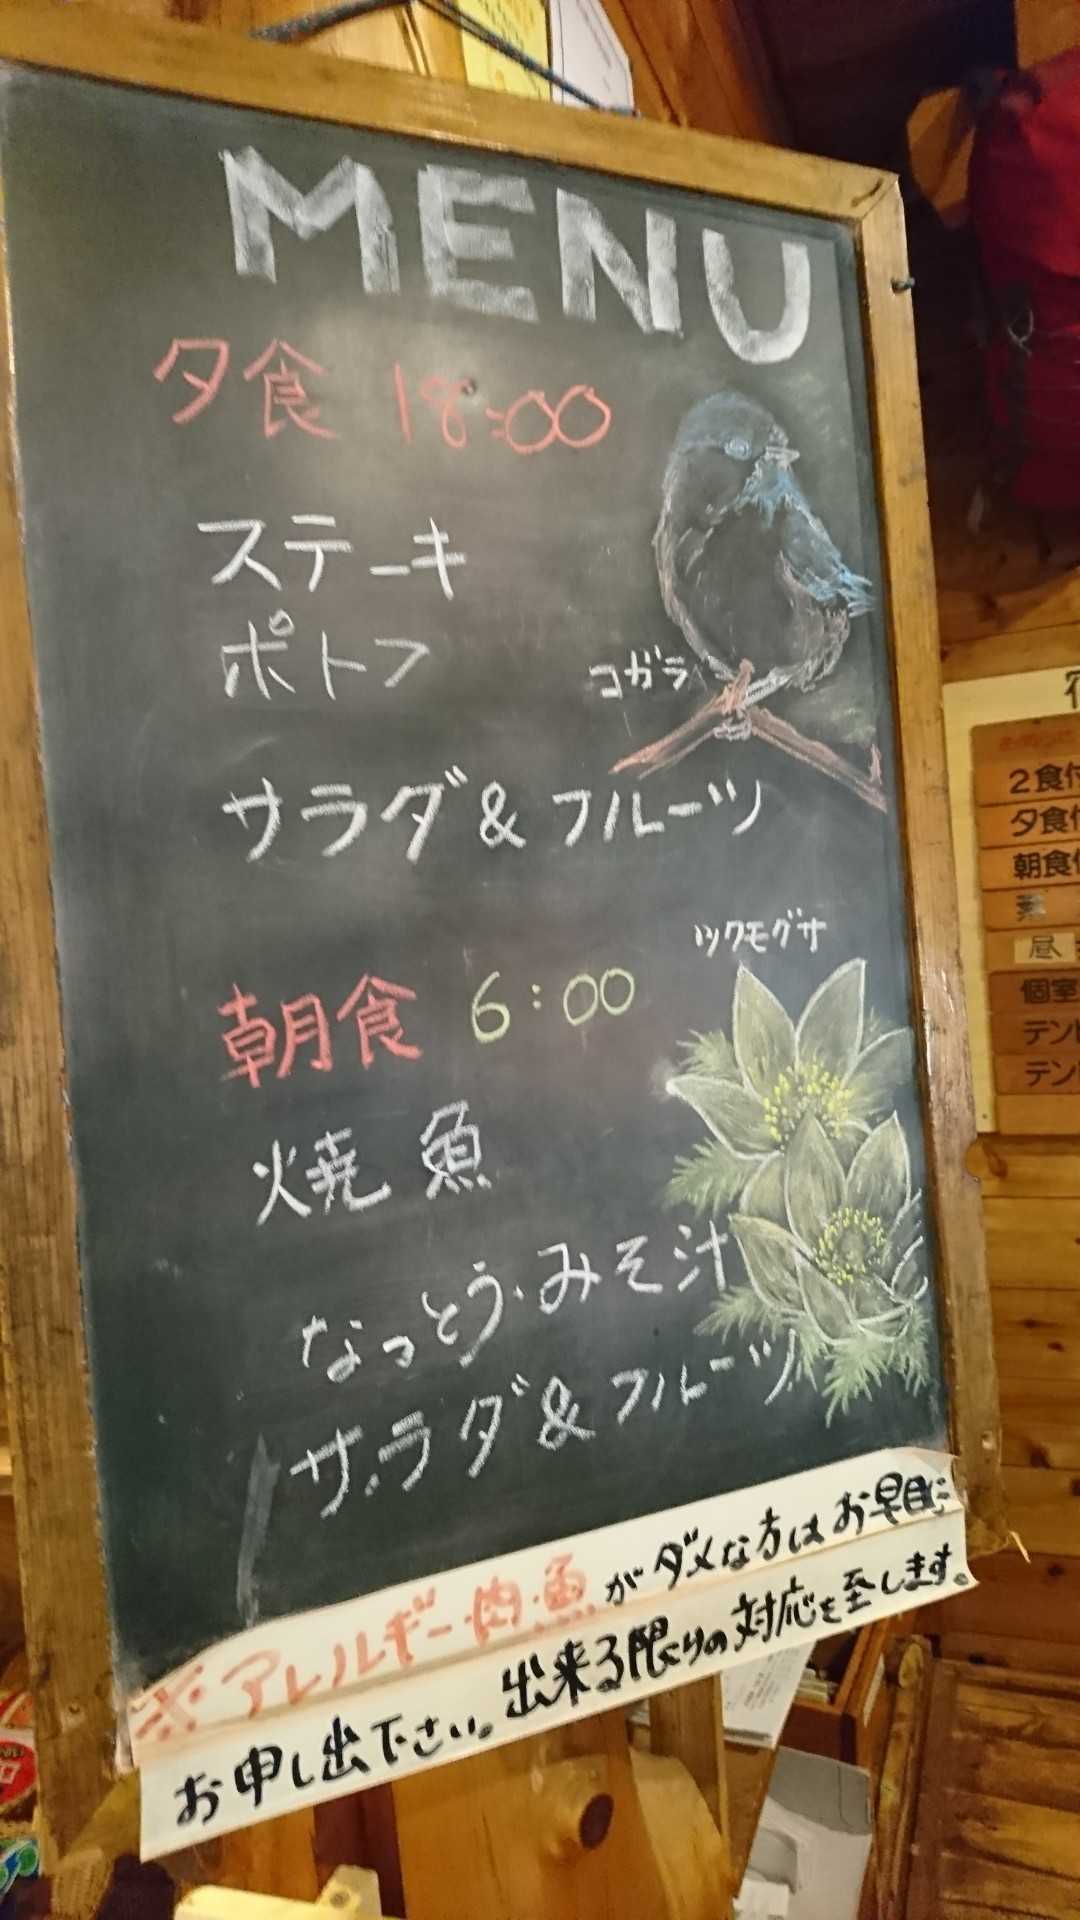 MENU
夕食 18:00
ステーキ
ポトフ
コガラ
サラダ & フルーツ
ツクモグサ
朝食 6:00
焼魚
なっとう・みそ汁
サラダ & フルーツ
※アレルギー・肉・魚がダメな方はお早目に
お申し出下さい。出来る限りの対応を至します。
2食付
夕食付
朝食付
素
昼
個室
テン
テン